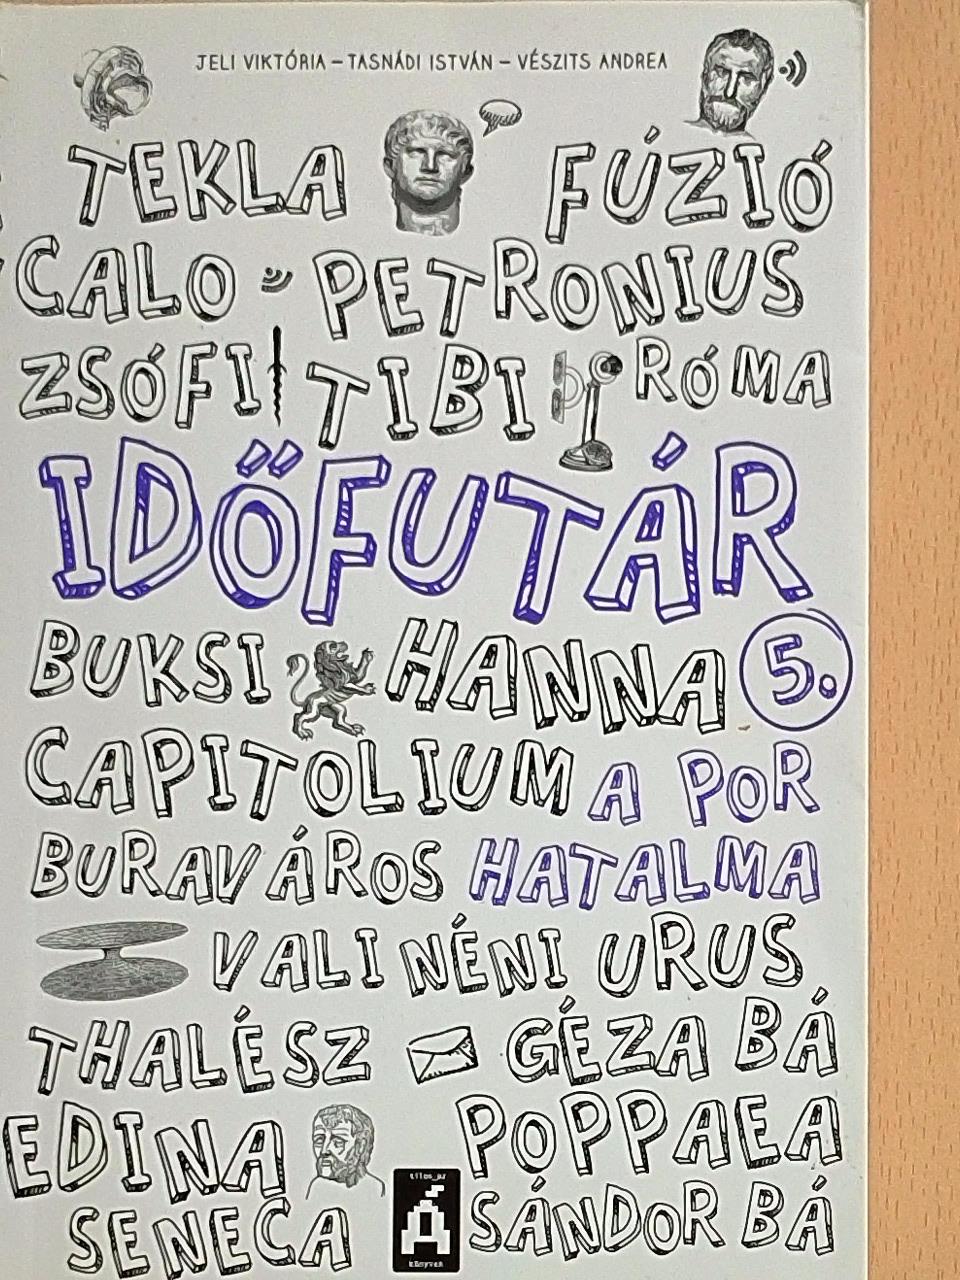 JELI VIKTÓRIA – TASNÁDI ISTVÁN – VÉSZITS ANDREA
TEKLA FÚZIÓ
CALO PETRONIUS
ZSÓFI TIBI RÓMA
IDŐFUTÁR
BUKSI HANNA 5.
CAPITOLIUM A POR
BURAVÁROS HATALMA
VALI NÉNI URUS
THALÉSZ GÉZA BÁ
EDINA POPPAEA
SENECA SÁNDOR BÁ
tilos_az
Á
könyvek